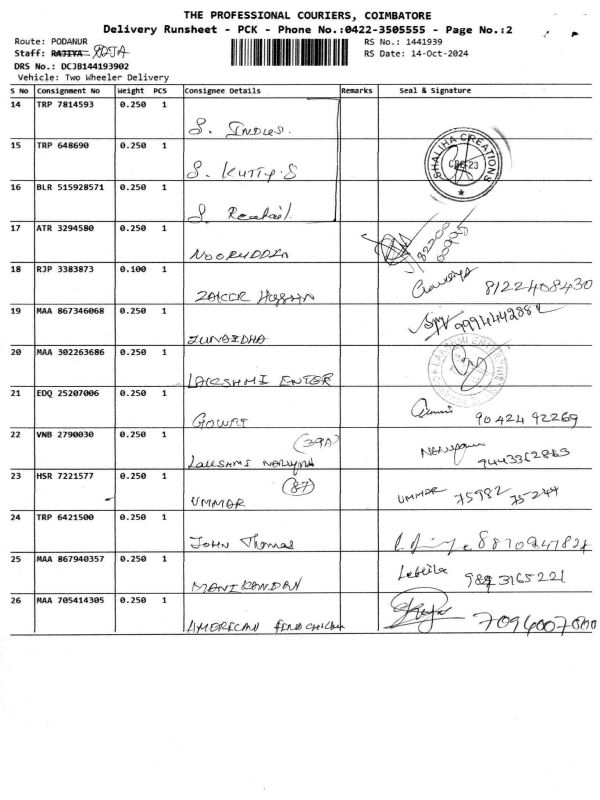 THE PROFESSIONAL COURIERS, COIMBATORE
Delivery Runsheet - PCK - Phone No.:0422-3505555 - Page No.:2
Route: PODANUR
RS No.: 1441939
Staff: RAJIYA RAJA
RS Date: 14-Oct-2024
DRS No.: DCJB144193902
Vehicle: Two Wheeler Delivery
S No Consignment No Weight PCS Consignee Details Remarks Seal & Signature
14 TRP 7814593 0.250 1 S. INDUS.
15 TRP 648690 0.250 1 S. KUTTY.S
SHALIHA CREATIONS
16 BLR 515928571 0.250 1
17 ATR 3294580 0.250 1 NOORUDDIN
18 RJP 3383873 0.100 1 ZAKEER HUSSAIN 8122408430
19 MAA 867346068 0.250 1 JUNAIDHA
20 MAA 302263686 0.250 1 LAKSHMI ENTER
21 EDQ 25207006 0.250 1 GOWRI 90424 92269
22 VNB 2790030 0.250 1 LAKSHMI NARAYANA (39A) 9443362863
23 HSR 7221577 0.250 1 UMMAR (87) UMMAR 75982 75244
24 TRP 6421500 0.250 1 JOHN Thomas
25 MAA 867940357 0.250 1 MANIKANDAN
26 MAA 705414305 0.250 1 AMERICAN 7094007000